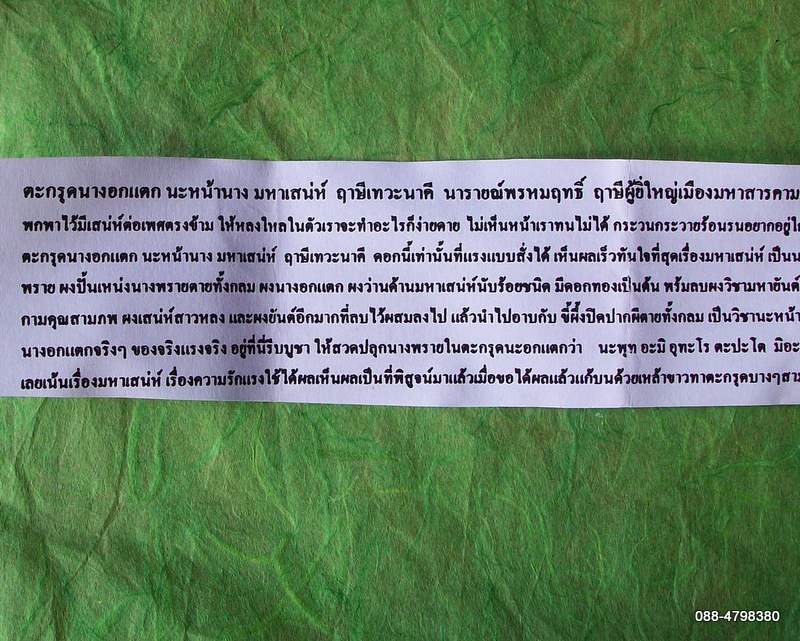 ตะกรุดนางอกแตก นะหน้านาง มหาเสน่ห์ ฤาษีเทวะนาคี นารายณ์พรหมฤทธิ์ ฤาษีผู้ยิ่ใหญ่เมืองมหาสารคาม
พกพาไว้มีเสน่ห์ต่อเพศตรงข้าม ให้หลงใหลในตัวเราจะทำอะไรก็ง่ายดาย ไม่เห็นหน้าเราทนไม่ได้ กระวนกระวายร้อนรนอยากอยู่
ตะกรุดนางอกแตก นะหน้านาง มหาเสน่ห์ ฤาษีเทวะนาคี ดอกนี้เท่านั้นที่แรงแบบสั่งได้ เห็นผลเร็วทันใจที่สุดเรื่องมหาเสน่ห์ เป็น
พราย ผงปั้นเหน่งนางพรายตายทั้งกลม ผงนางอกแตก ผงว่านด้านมหาเสน่ห์นับร้อยชนิด มีดอกทองเป็นต้น พร้มลบผงวิชามหายันต์
กามคุณสามภพ ผงเสน่ห์สาวหลง และผงยันต์อีกมากที่ลบไว้ผสมลงไป แล้วนำไปอาบกับ ขี้ผึ้งปิดปากผีตายทั้งกลม เป็นวิชานะหน้า
นางอกแตกจริงๆ ของจริงแรงจริง อยู่ที่นี่รีบบูชา ให้สวดปลุกนางพรายในตะกรุดนะอกแตกว่า นะพุท อะมิ อุทะโร ตะปะโต มิอะ
เลยเน้นเรื่องมหาเสน่ห์ เรื่องความรักแรงใช้ได้ผลเห็นผลเป็นที่พิสูจน์มาแล้วเมื่อขอได้ผลแล้วแก้บนด้วยเหล้าขาวทาตะกรุดบางๆ
088-4798380